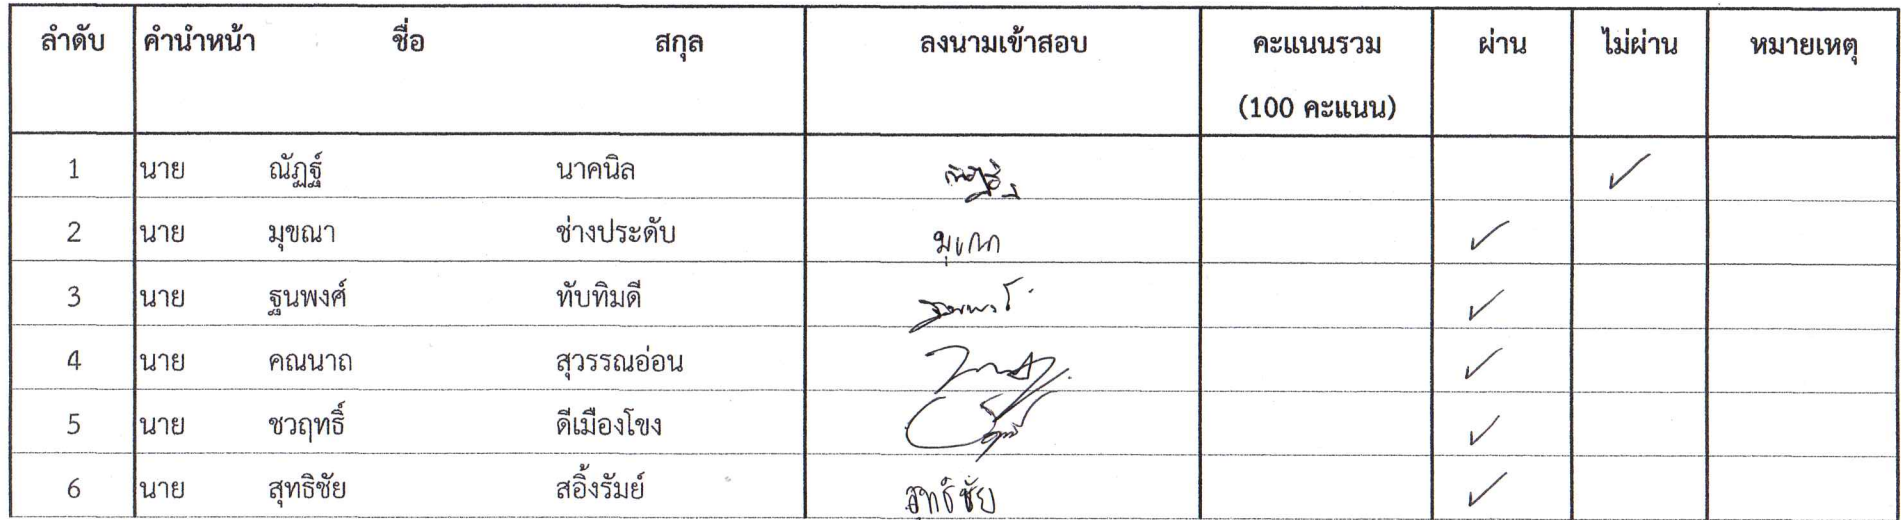 ลำดับ คำนำหน้า ชื่อ สกุล ลงนามเข้าสอบ คะแนนรวม ผ่าน ไม่ผ่าน หมายเหตุ
(100 คะแนน)
1 นาย ณัฏฐ์ นาคนิล ณัฏฐ์ ✓
2 นาย มุขณา ช่างประดับ มุขณา ✓
3 นาย ฐนพงศ์ ทับทิมดี ✓
4 นาย คณนาถ สุวรรณอ่อน ✓
5 นาย ชวฤทธิ์ ดีเมืองโขง ✓
6 นาย สุทธิชัย สอิ้งรัมย์ สุทธิชัย ✓